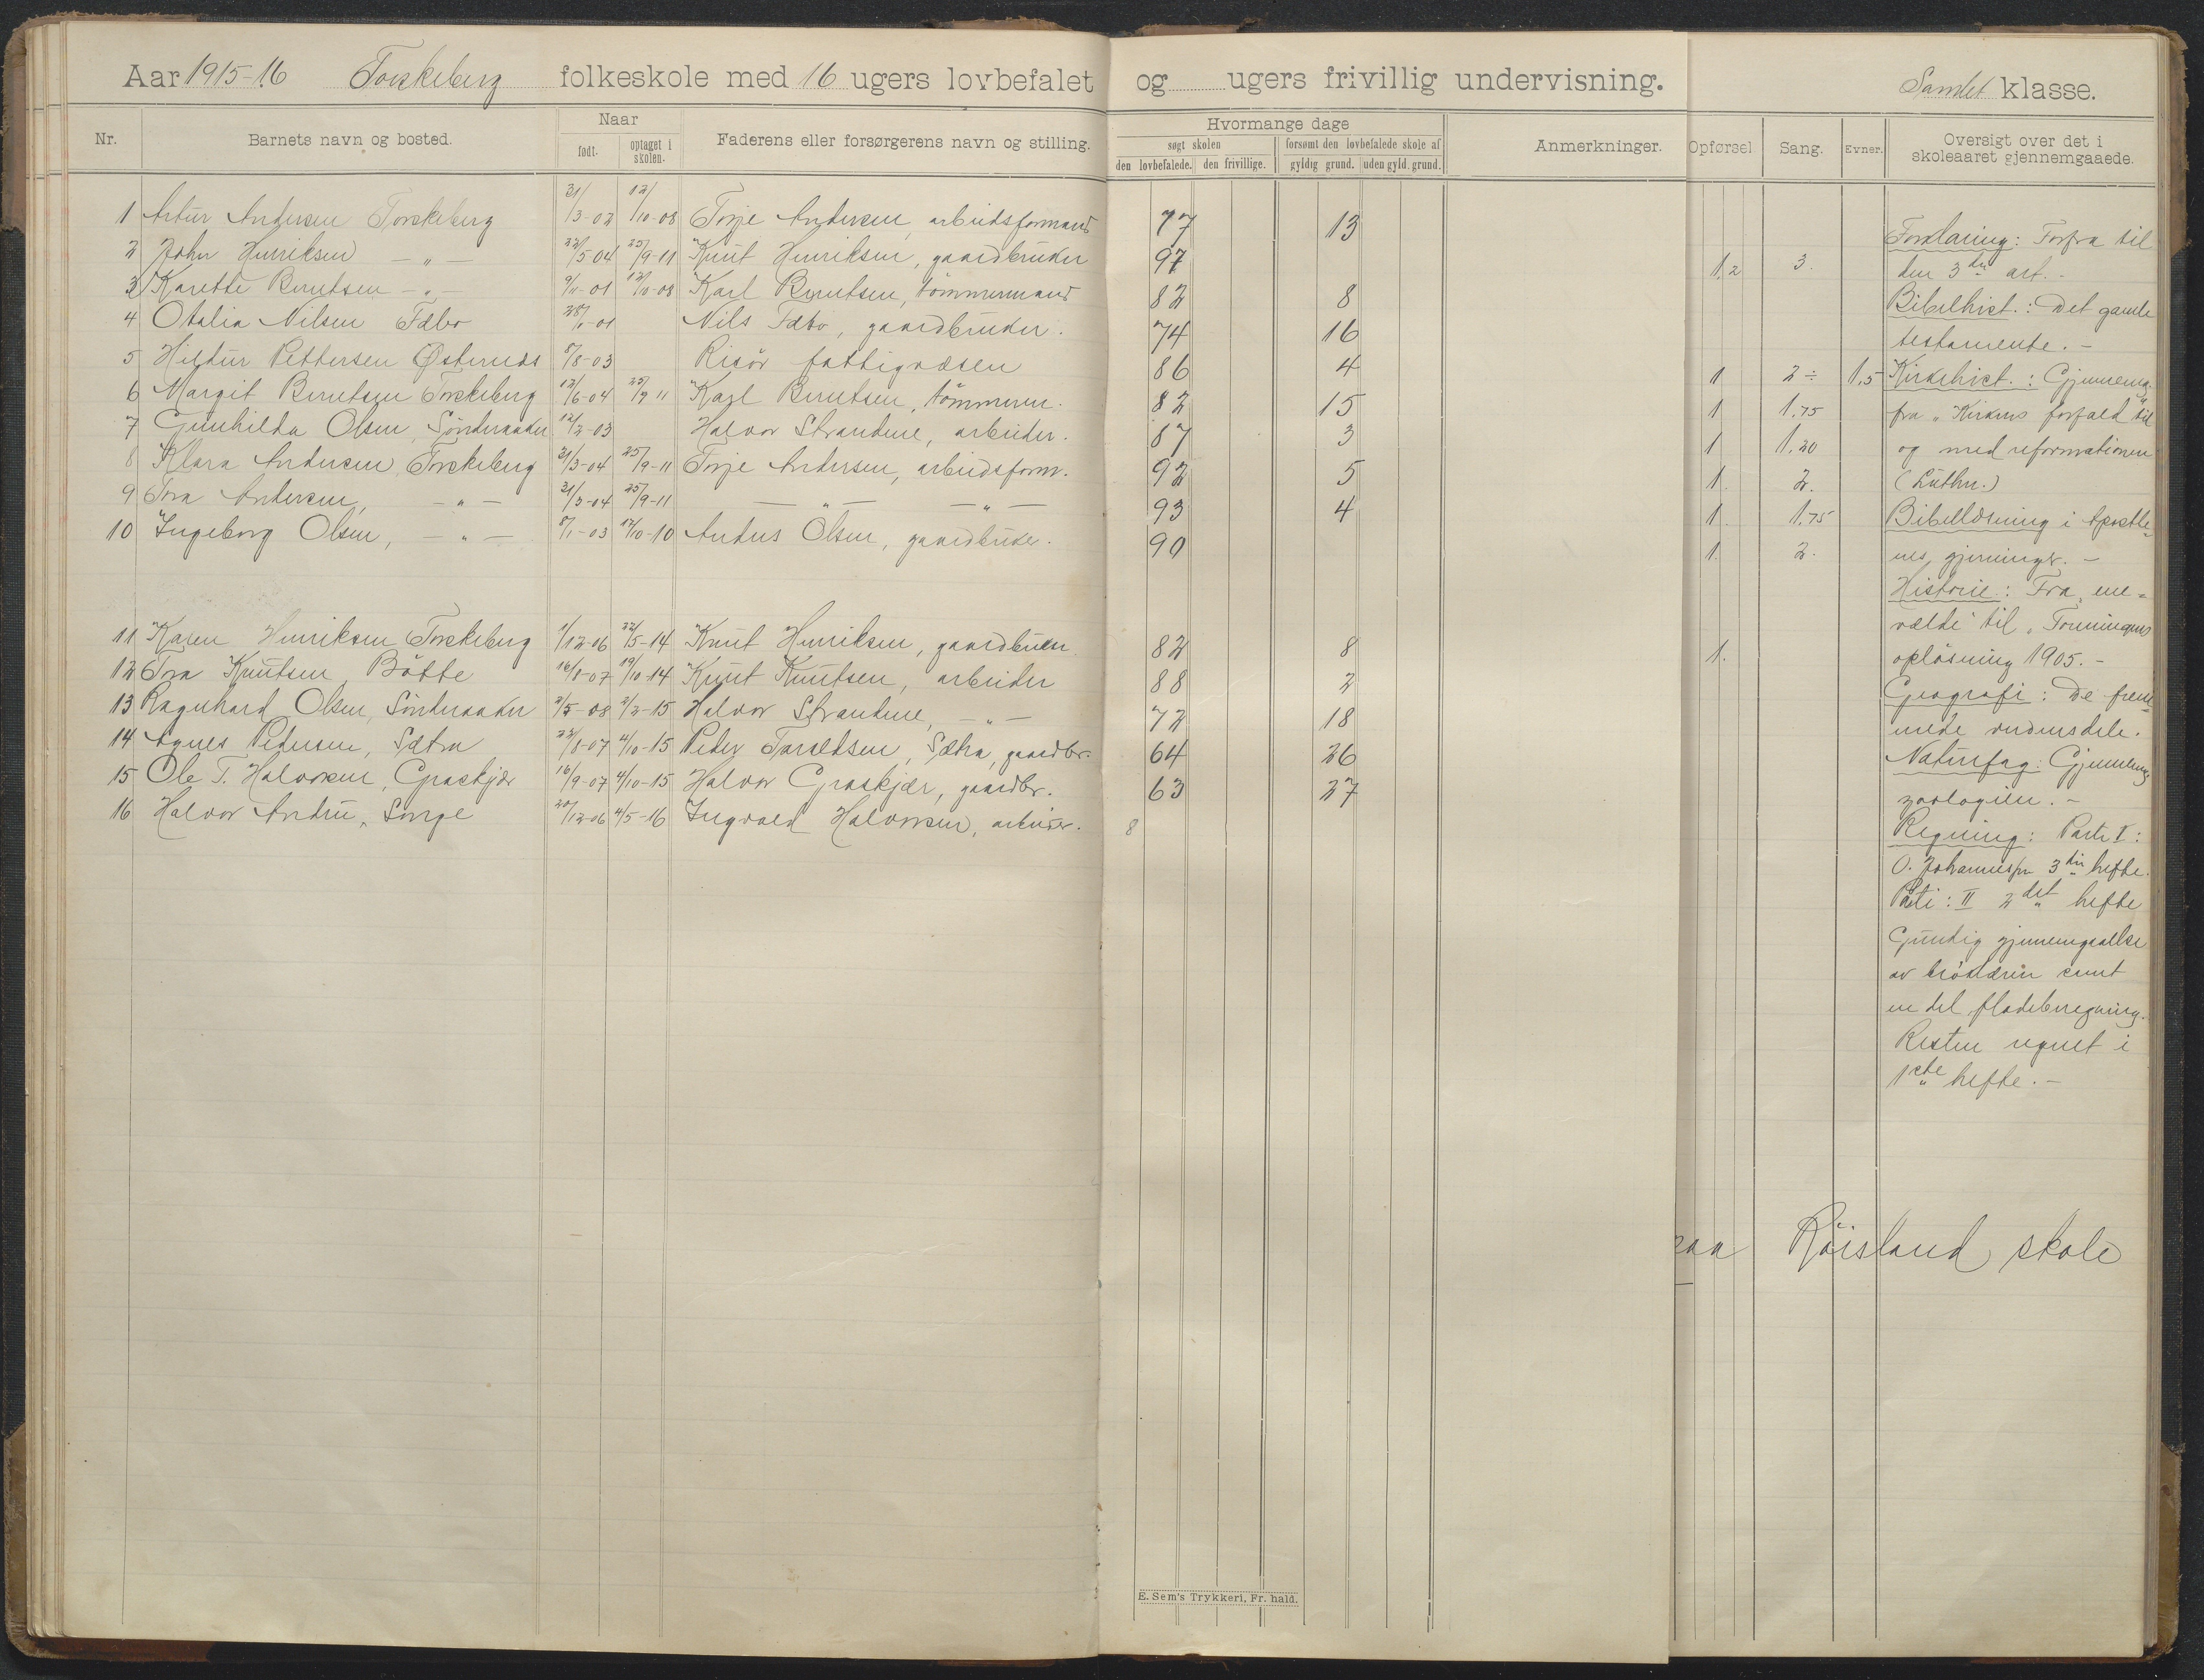 Aar 1915-16 Torskeberg folkeskole med 16 ugers lovbefalet og ugers frivillig undervisning. Samlet klasse.
Nr. Barnets navn og bosted. Naar født. optaget i skolen. Faderens eller forsørgerens navn og stilling. Hvormange dage søgt skolen den lovbefalede. den frivillige. forsømt den lovbefalede skole af gyldig grund. uden gyld. grund. Anmerkninger. Opførsel Sang. Evner. Oversigt over det i skoleaaret gjennemgaaede.
1 Artur Andersen Torskeberg 31/3-02 12/10-08 Torje Andersen, arbeidsformand 77 13
2 John Henriksen - " - 22/5-04 25/9-11 Knut Henriksen, gaardbruker 97 1,2 3.
3 Karette Berntsen - " - 9/11-01 12/10-08 Karl Berntsen, tømmermand 82 8
4 Otalia Nilsen Fæbo 28/1-01 Nils Fæbo, gaardbruker. 74 16
5 Hildur Pettersen Østernes 8/8-03 Risør fattigvæsen 86 4 1 2÷ 1.5
6 Margit Berntsen Torskeberg 12/6-04 25/9 11 Karl Berntsen, tømmerm. 82 15 1 1.75
7 Gunhilda Olsen, Sønderaaker 12/2-03 Halvor Strandene, arbeider. 87 3 1 1.20
8 Klara Andersen, Torskeberg 21/3-04 25/9-11 Torje Andersen, arbeidsform. 92 5 1. 2.
9 Tora Andersen, - " - 21/3-04 25/9-11 - " - - " - 93 4 1. 1.75
10 Ingeborg Olsen, - " - 8/1-03 12/10-10 Anders Olsen, gaardbruker. 90 1. 2.
11 Karen Henriksen Torskeberg 1/12-06 22/5-14 Knut Henriksen, gaardbruker 82 8 1.
12 Tora Knutsen, Bøtte 16/8-07 19/10-14 Knut Knutsen, arbeider 88 2
13 Ragnhard Olsen, Sønderaaker 2/5-08 2/2-15 Halvor Strandene, - " - 72 18
14 Agnes Pedersen, Sætra 22/8-07 4/10-15 Peder Tarseldsen, Sætra, gaardbr. 64 26
15 Ole T. Halvorsen, Graskjær 16/9-07 4/10-15 Halvor Graskjær, gaardbr. 63 27
16 Halvor Andru, Songe 20/12-06 4/5-16 Ingvald Halvorsen, arbeider. 8
Forklaring: Forfra til
den 3die art. -
Bibelhist.: Det gamle
testamente. -
Kirkehist.: Gjennemg.
fra "Kirkens forfald" til
og med reformationen
(Luther.)
Bibellæsning i Apostle-
nes gjerninger. -
Historie: Fra "ene-
vælde" til "Foreningens
opløsning 1905. -
Geografi: De frem-
mede verdensdele.
Naturfag: Gjennemg.
zoologien. -
Regning: Parti I:
O. Johannesen 3die hefte.
Parti: II 2det hefte
Grundig gjennemgaaelse
av brøklæren samt
en del fladeberegning.
Resten regnet i
1ste hefte. -
paa Røisland skole
E. Sem's Trykkeri, Fr. hald.